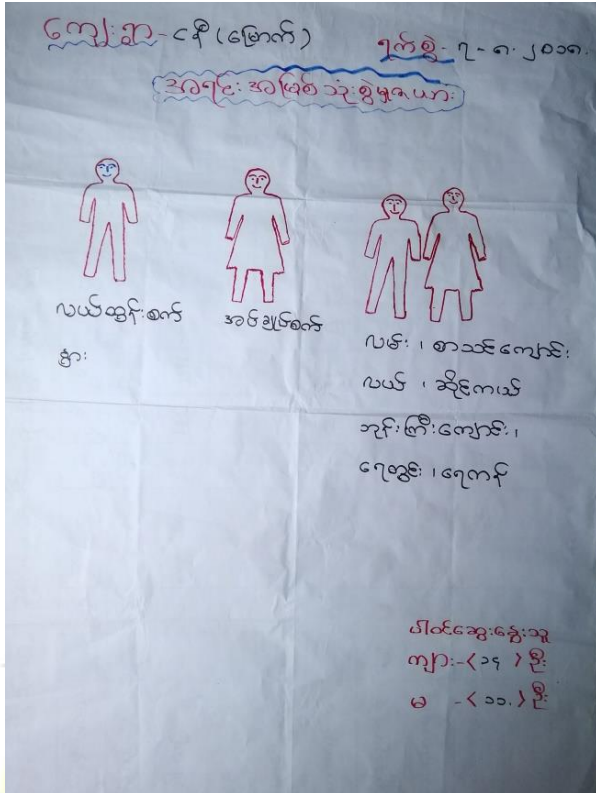 ကျေးရွာ - ငနီ (မြောက်)
ရက်စွဲ - ၇ - ၈ - ၂၀၁၈.
အရင်းအမြစ်သုံးစွဲမှုဇယား
လယ်ထွန်စက်
နွား
အပ်ချုပ်စက်
လမ်း ၊ စာသင်ကျောင်း
လယ် ၊ ဆိုင်ကယ်
ဘုန်းကြီးကျောင်း ၊
ရေတွင်း ၊ ရေကန်
ပါဝင်ဆွေးနွေးသူ
ကျား - < ၁၄ > ဦး
မ - < ၁၁. > ဦး